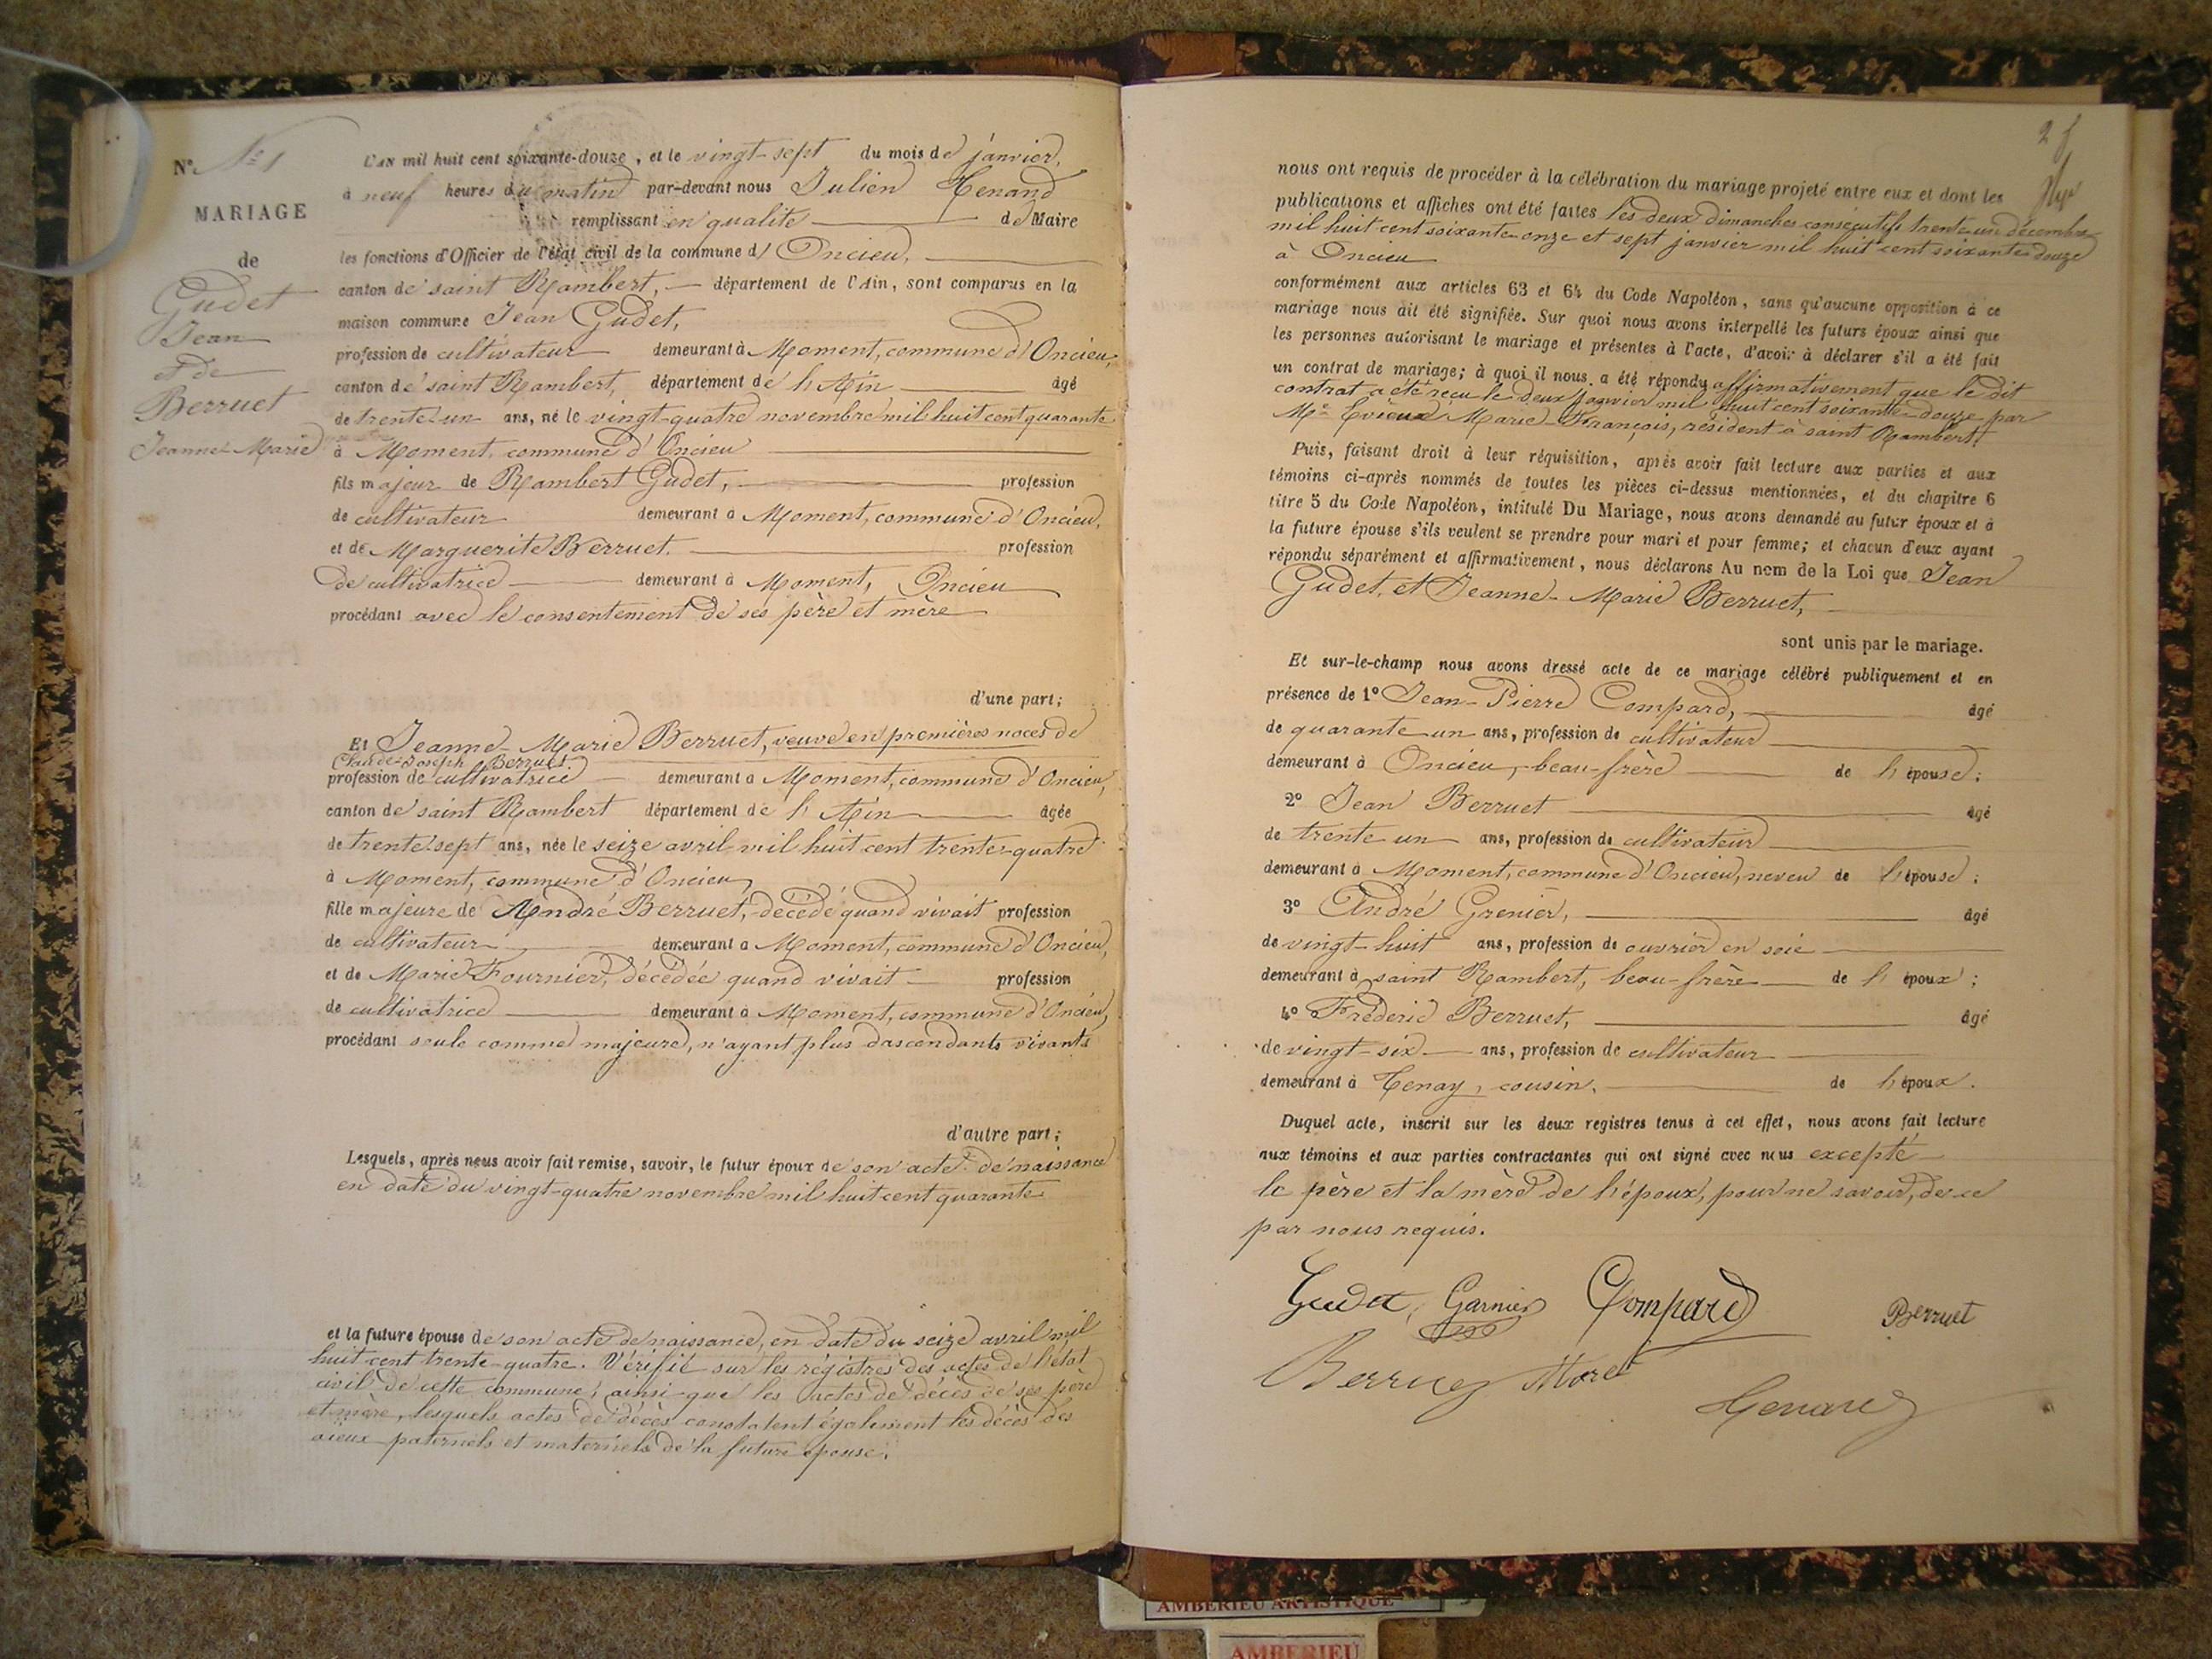 N° N° 1
MARIAGE
de
Gudet
Jean
et de
Berruet
Jeanne-Marie
L'AN mil huit cent soixante-douze, et le vingt-sept du mois de janvier,
à neuf heures du matin par-devant nous Julien Tenand
remplissant en qualité de Maire
les fonctions d'Officier de l'état civil de la commune d' Oncieu,
canton de saint Rambert, département de l'Ain, sont comparus en la
maison commune Jean Gudet,
profession de cultivateur demeurant à Moment, commune d'Oncieu,
canton de saint Rambert, département de l'Ain âgé
de trente-un ans, né le vingt-quatre novembre mil huit cent quarante
à Moment, commune d'Oncieu
fils majeur de Rambert Gudet, profession
de cultivateur demeurant à Moment, commune d'Oncieu,
et de Marguerite Berruet. profession
de cultivatrice demeurant à Moment, Oncieu
procédant avec le consentement de ses père et mère
d'une part;
Et Jeanne-Marie Berruet, veuve en premières noces de
Claude-Joseph Berruet
profession de cultivatrice demeurant à Moment, commune d'Oncieu,
canton de saint Rambert département de l'Ain âgée
de trente-sept ans, née le seize avril mil huit cent trente-quatre
à Moment, commune d'Oncieu,
fille majeure de André Berruet, décédé quand vivait profession
de cultivateur demeurant à Moment, commune d'Oncieu,
et de Marie Fournier, décédée quand vivait profession
de cultivatrice demeurant à Moment, commune d'Oncieu,
procédant seule comme majeure, n'ayant plus d'ascendants vivants
d'autre part;
Lesquels, après nous avoir fait remise, savoir, le futur époux de son acte de naissance
en date du vingt-quatre novembre mil huit cent quarante
et la future épouse de son acte de naissance, en date du seize avril mil
huit cent trente-quatre. Vérifié sur les régistres des actes de l'état
civil de cette commune, ainsi que les actes de décès de ses père
et mère, lesquels actes de décès constatent également les décès des
aïeux paternels et maternels de la future épouse.
2
nous ont requis de procéder à la célébration du mariage projeté entre eux et dont les
publications et affiches ont été faites les deux dimanches consécutifs trente un décembre
mil huit cent soixante-onze et sept janvier mil huit cent soixante-douze
à Oncieu
conformément aux articles 63 et 64 du Code Napoléon, sans qu'aucune opposition à ce
mariage nous ait été signifiée. Sur quoi nous avons interpellé les futurs époux ainsi que
les personnes autorisant le mariage et présentes à l'acte, d'avoir à déclarer s'il a été fait
un contrat de mariage; à quoi il nous a été répondu affirmativement que le dit
contrat a été reçu le deux janvier mil huit cent soixante-douze par
Me Marie-François, résident à saint Rambert
Puis, faisant droit à leur réquisition, après avoir fait lecture aux parties et aux
témoins ci-après nommés de toutes les pièces ci-dessus mentionnées, et du chapitre 6
titre 5 du Code Napoléon, intitulé Du Mariage, nous avons demandé au futur époux et à
la future épouse s'ils veulent se prendre pour mari et pour femme; et chacun d'eux ayant
répondu séparément et affirmativement, nous déclarons Au nom de la Loi que Jean
Gudet, et Jeanne-Marie Berruet,
sont unis par le mariage.
Et sur-le-champ nous avons dressé acte de ce mariage célébré publiquement et en
présence de 1° Jean-Pierre Compard, âgé
de quarante-un ans, profession de cultivateur
demeurant à Oncieu, beau-frère de l'épouse;
2° Jean Berruet âgé
de trente-un ans, profession de cultivateur
demeurant à Moment, commune d'Oncieu, neveu de l'épouse;
3° André Grenier, âgé
de vingt-huit ans, profession de ouvrier en soie
demeurant à saint Rambert, beau-frère de l'époux;
4° Fréderic Berruet, âgé
de vingt-six ans, profession de cultivateur
demeurant à Tenay, cousin. de l'époux.
Duquel acte, inscrit sur les deux registres tenus à cet effet, nous avons fait lecture
aux témoins et aux parties contractantes qui ont signé avec nous excepté
le père et la mère de l'époux, pour ne savoir, de ce
par nous requis.
Gudet Garnier Compard Berruet
Berruet
Tenand
AMBERIEU ARTISTIQUE
AMBERIEU